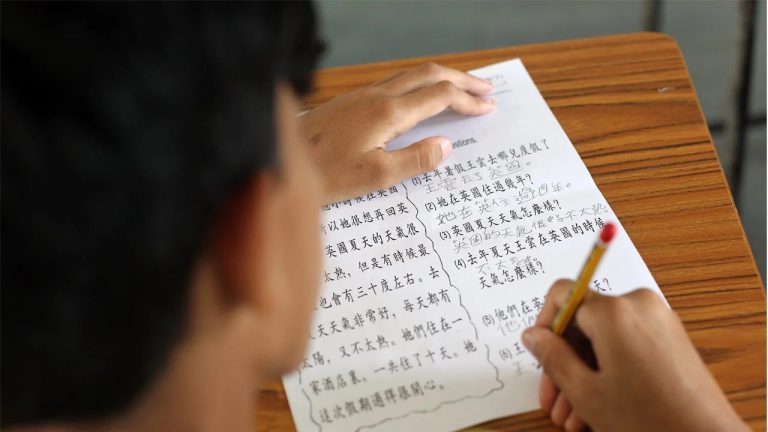 小時候住在英國
所以她很想再回英
英國夏天的天氣很
太熱。但是有時候最
也會有三十度左右。去
天天氣非常好，每天都有
太陽，又不太熱。她們住在一
家酒店裏，一共住了十天。她
這次假期過得很開心。
estions.
(1)去年暑假王雲去哪兒度假了
王雲去了英國。
(2)她在英國住過幾年?
她在英住過四年。
(3)英國夏天天氣怎麼樣?
英國的天氣很好不太熱
(4)去年夏天王雲在英國的時候
不太
天氣怎麼樣?
(5)他們在英
他們
(6)王
王